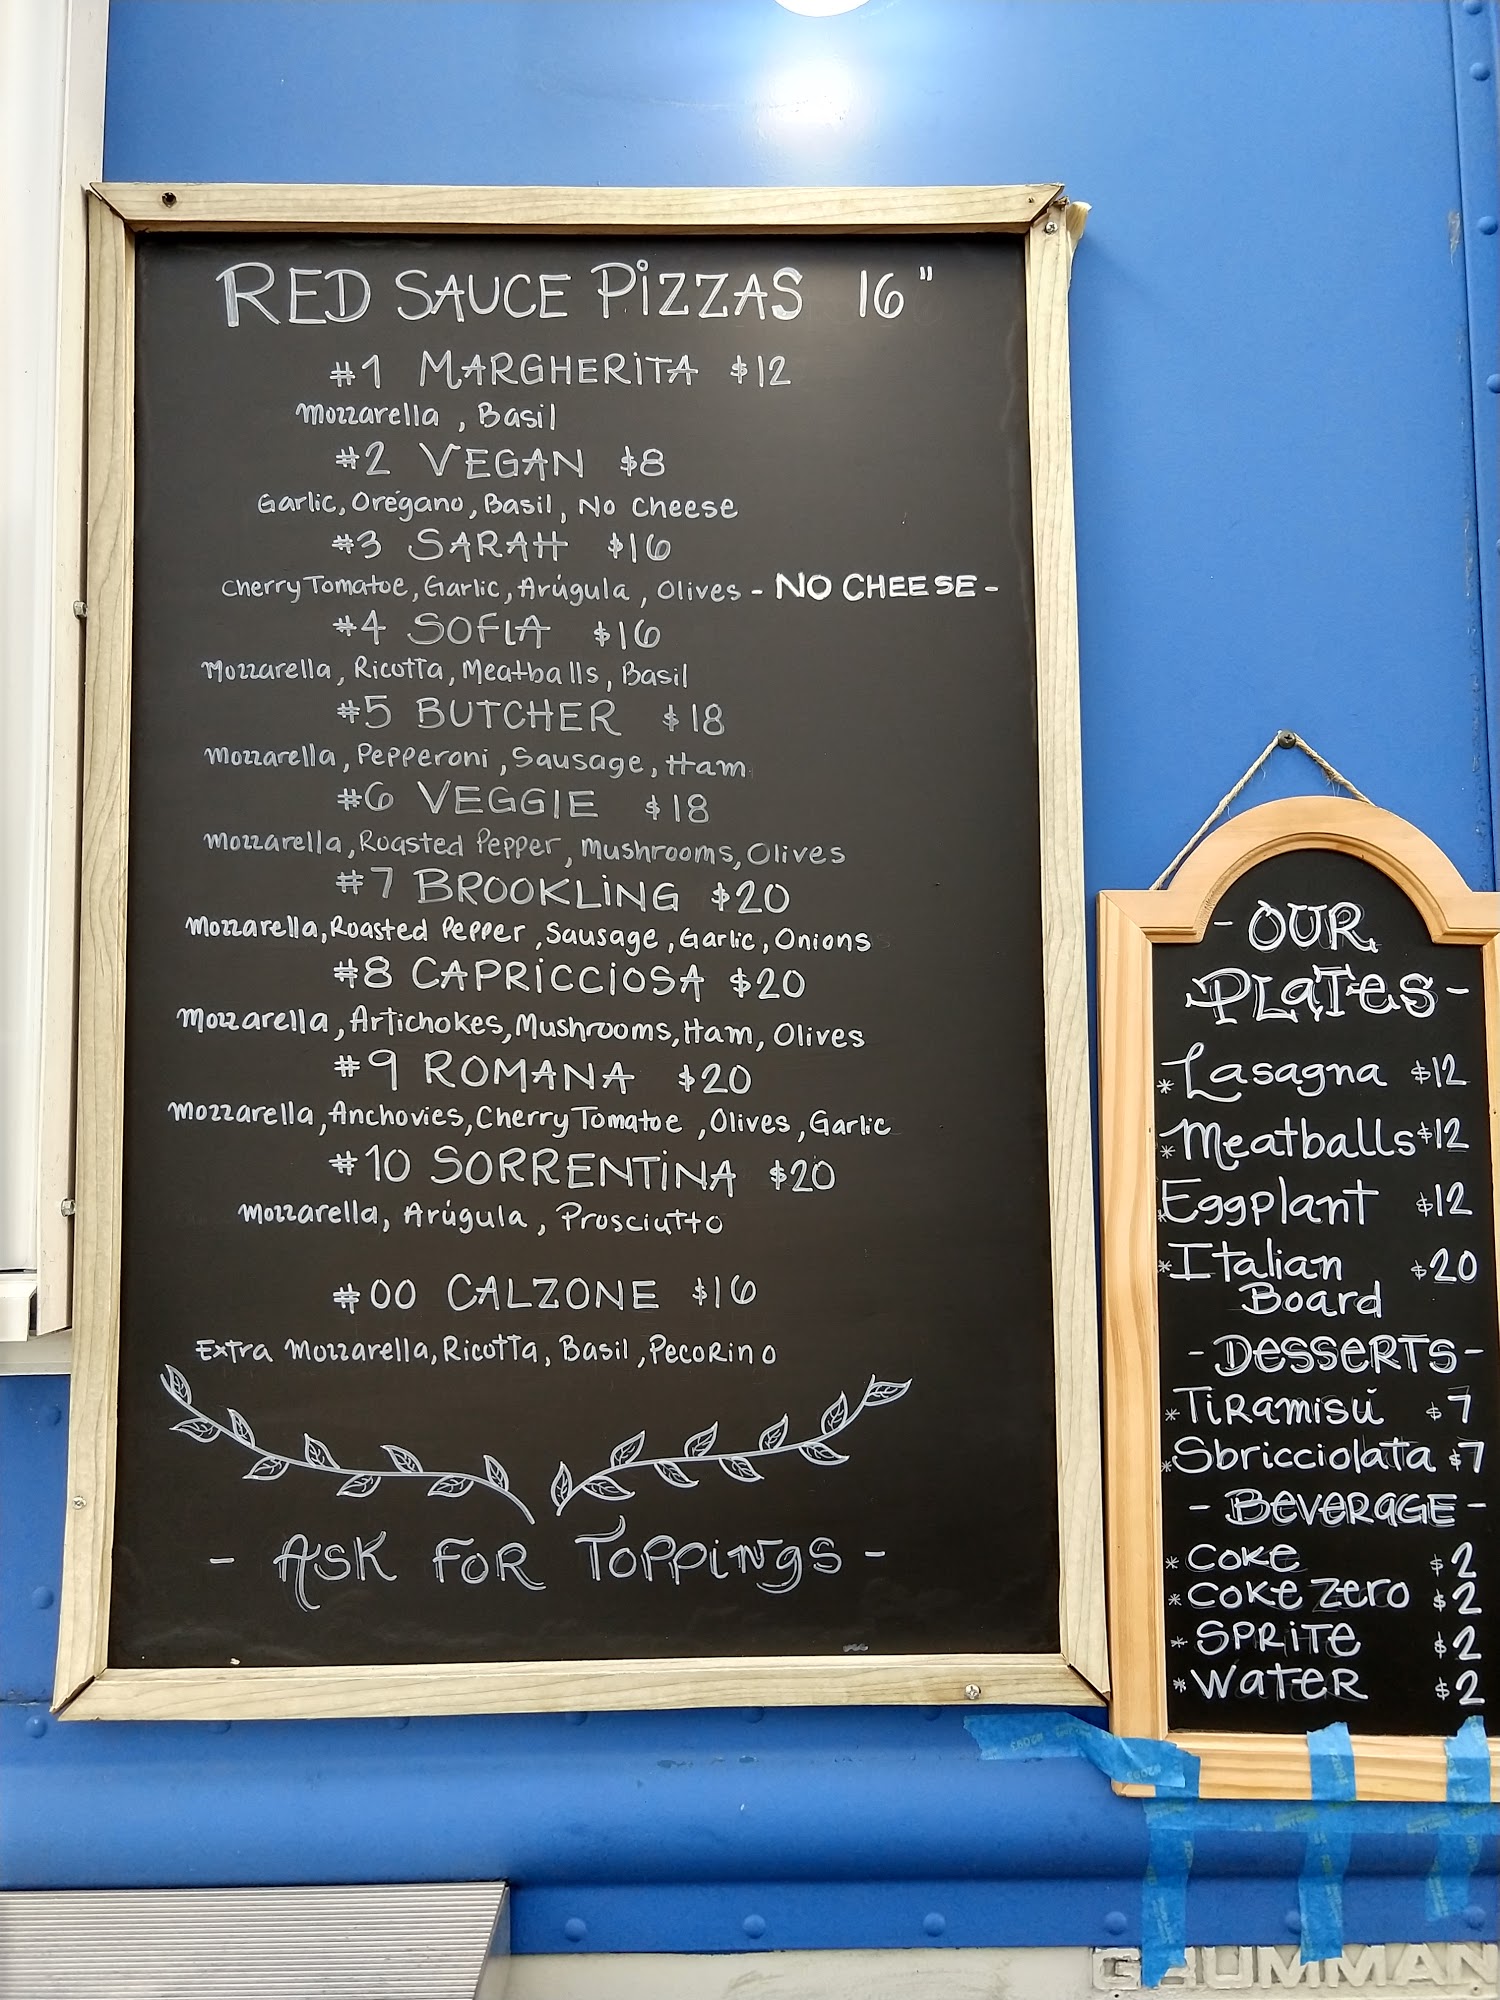 RED SAUCE PIZZAS 16"
#1 MARGHERITA $12
Mozzarella, Basil
#2 VEGAN $8
Garlic, Orégano, Basil, No Cheese
#3 SARAH $16
Cherry Tomatoe, Garlic, Arúgula, Olives - NO CHEESE -
#4 SOFIA $16
Mozzarella, Ricotta, Meatballs, Basil
#5 BUTCHER $18
Mozzarella, Pepperoni, Sausage, Ham
#6 VEGGIE $18
Mozzarella, Roasted Pepper, Mushrooms, Olives
#7 BROOKLING $20
Mozzarella, Roasted Pepper, Sausage, Garlic, Onions
#8 CAPRICCIOSA $20
Mozzarella, Artichokes, Mushrooms, Ham, Olives
#9 ROMANA $20
Mozzarella, Anchovies, Cherry Tomatoe, Olives, Garlic
#10 SORRENTINA $20
Mozzarella, Arúgula, Prosciutto
#00 CALZONE $16
Extra Mozzarella, Ricotta, Basil, Pecorino
- ASK FOR TOPPINGS -
- OUR
PLATES -
* Lasagna $12
* Meatballs $12
* Eggplant $12
* Italian $20
Board
- DESSERTS -
* Tiramisú $7
* Sbricciolata $7
- BEVERAGE -
* COKE $2
* COKE ZERO $2
* SPRITE $2
* WATER $2
GRUMMAN